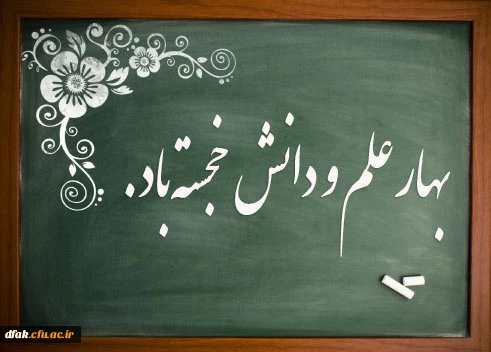 بهار علم و دانش خجسته باد.
dfak.cfu.ac.ir